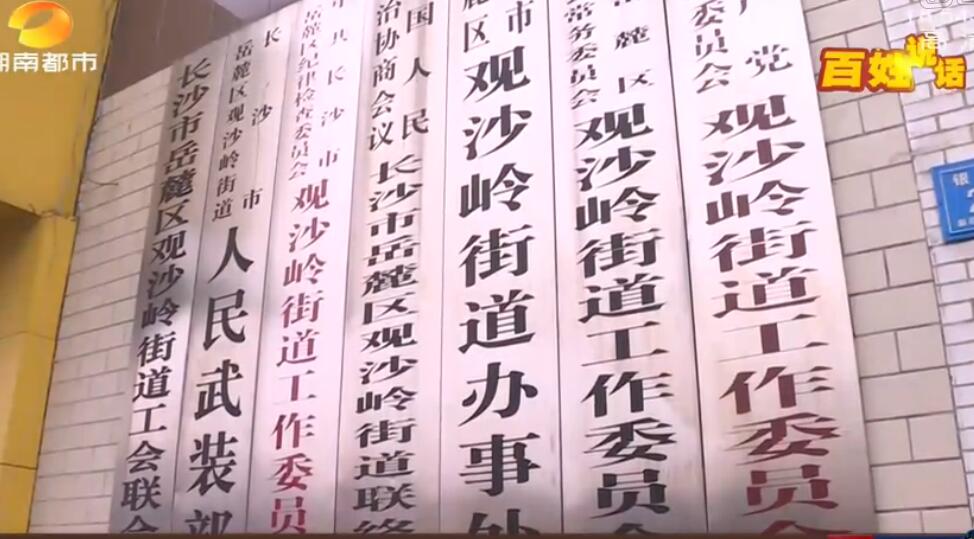 湖南都市
百姓说话
党
委员会
观沙岭街道工作委员会
麓区
常务委员会
观沙岭街道工作委员会
市
麓区
观沙岭街道办事处
国人民
治协商会议
长沙市岳麓区观沙岭街道联络
中共长沙市
岳麓区纪律检查委员会
观沙岭街道工作委员
长沙市
岳麓区观沙岭街道
人民武装部
长沙市岳麓区观沙岭街道工会联合
银